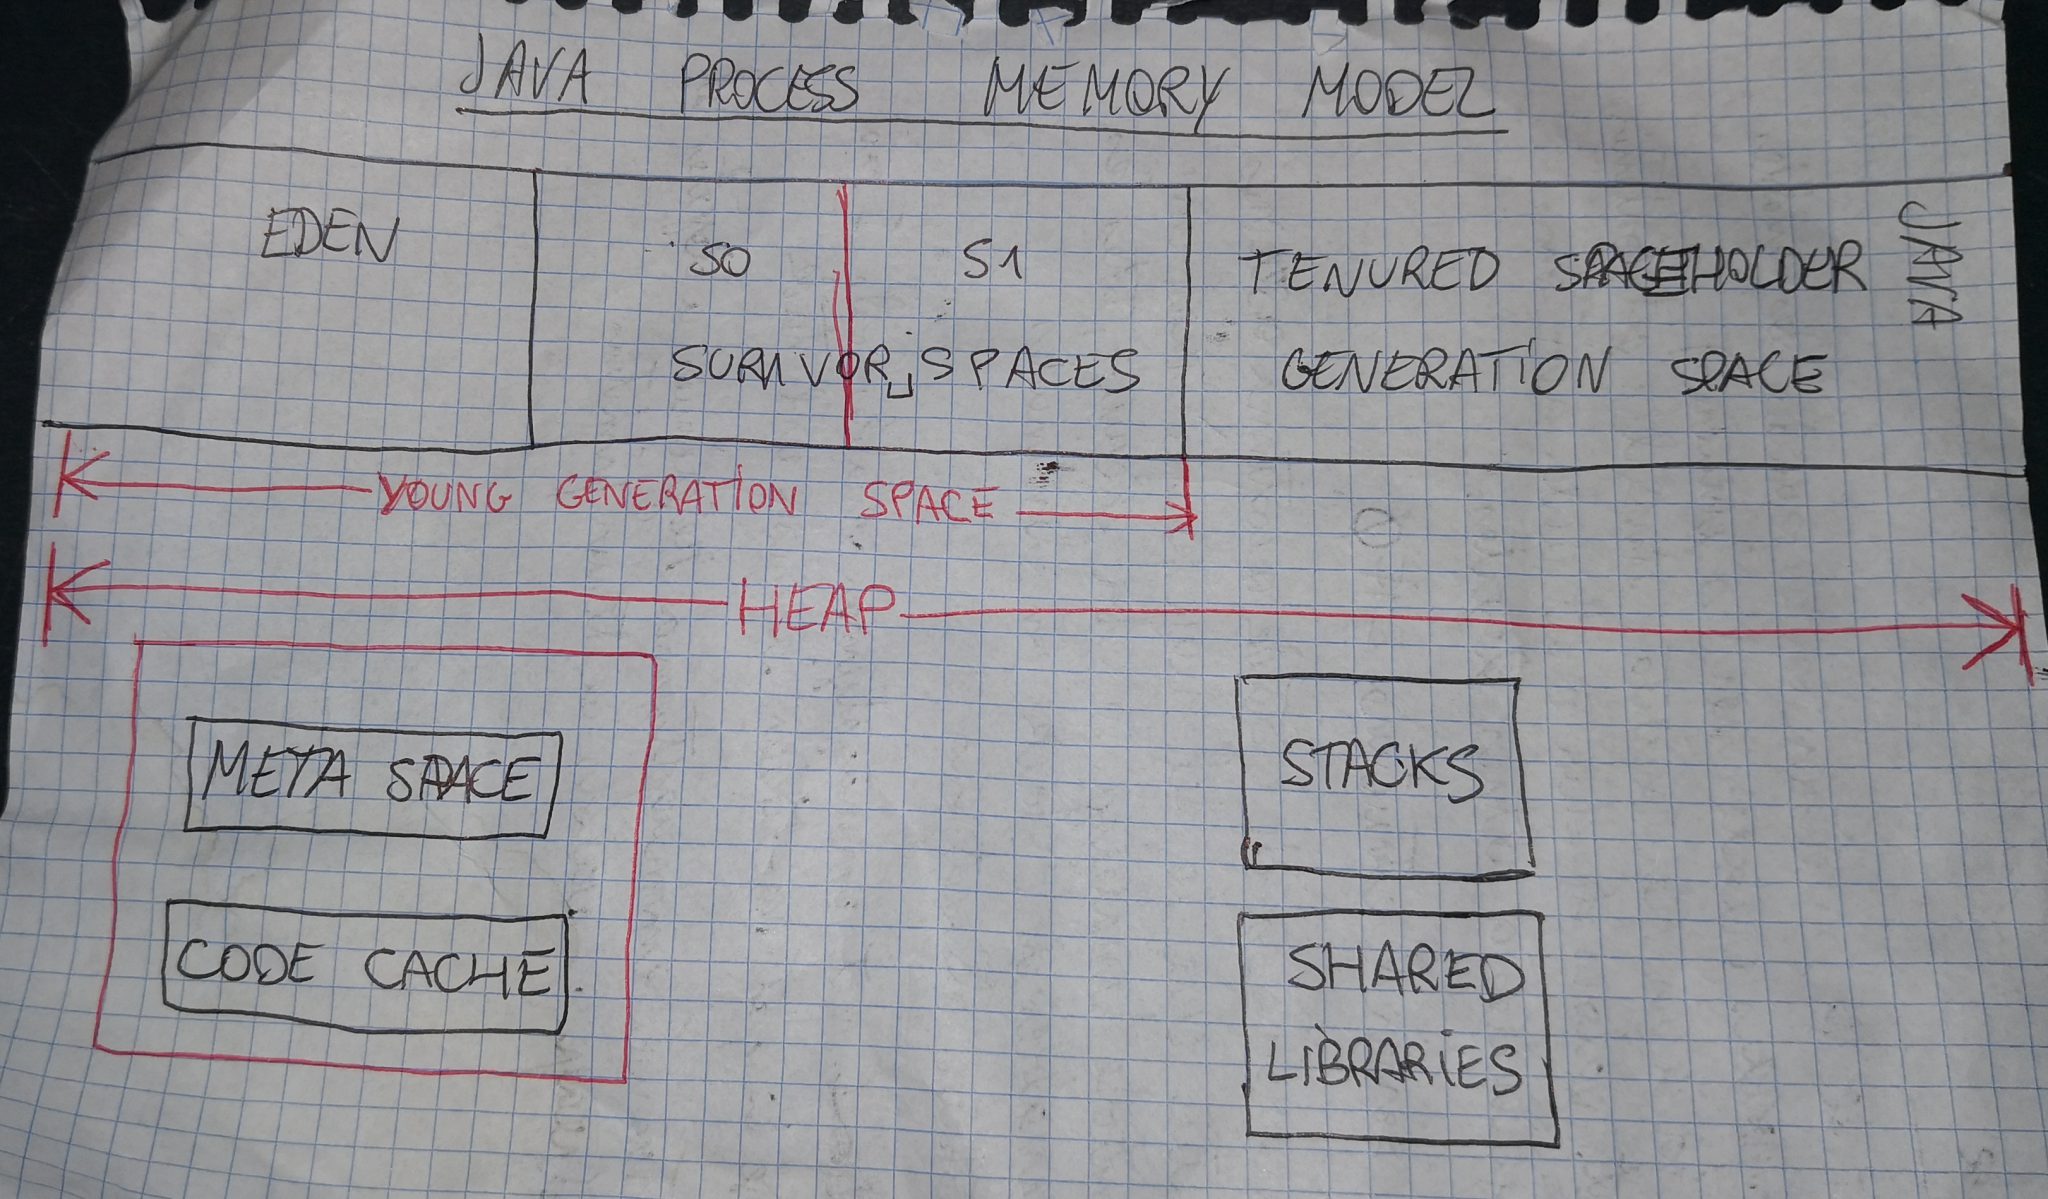 JAVA PROCESS MEMORY MODEL
EDEN
S0
S1
SURVIVOR SPACES
TENURED HOLDER
GENERATION SPACE
JAVA
YOUNG GENERATION SPACE
HEAP
META SPACE
CODE CACHE
STACKS
SHARED
LIBRARIES